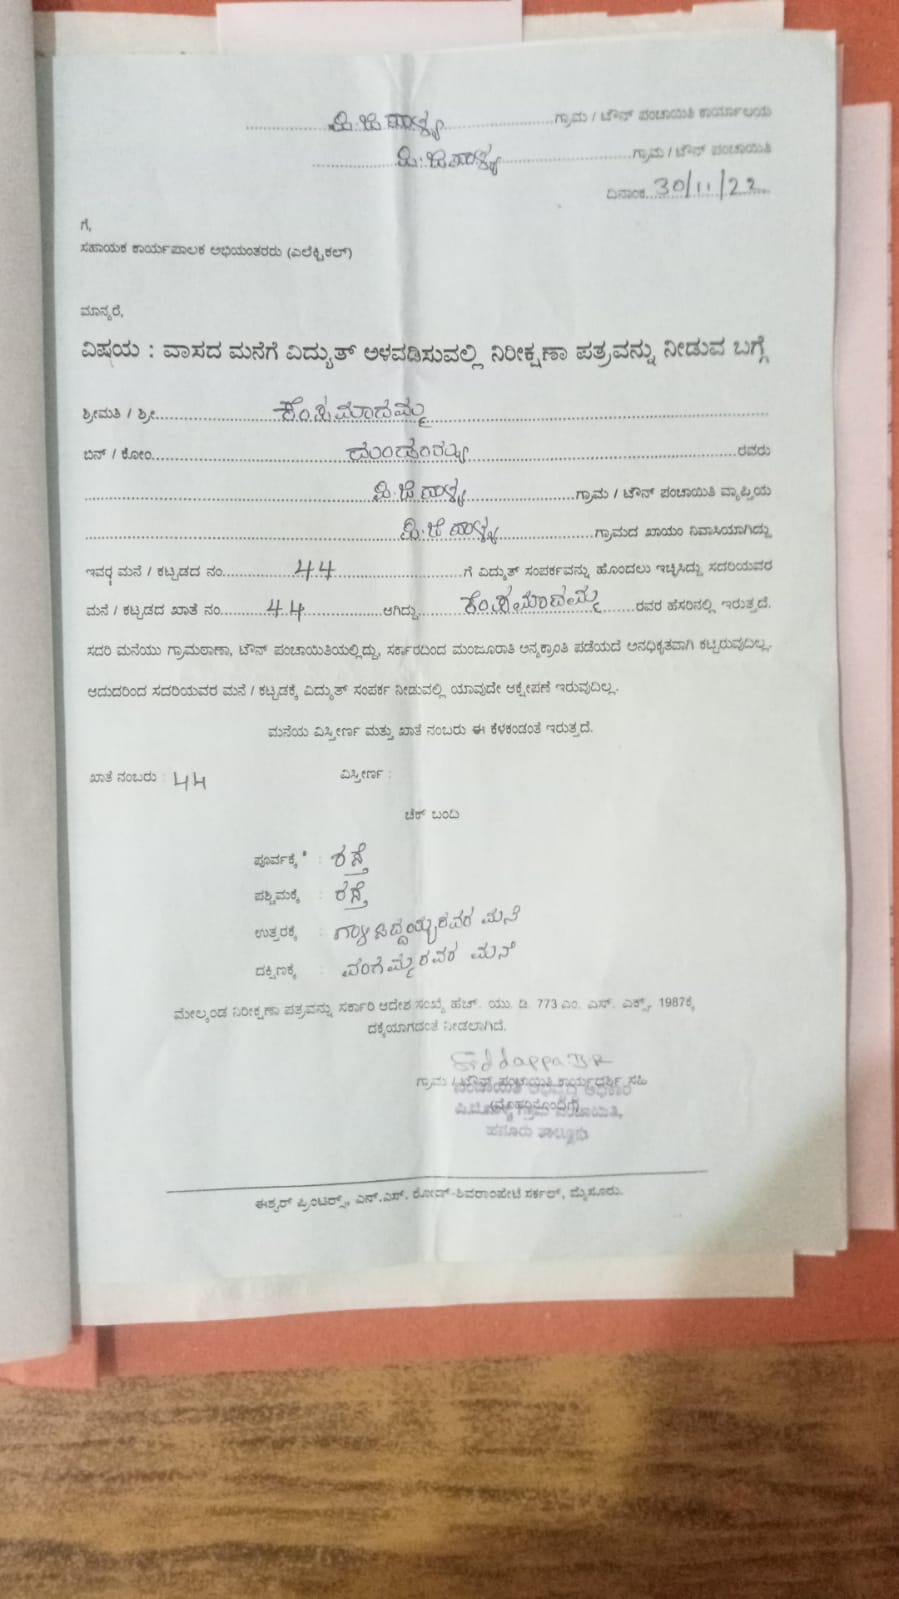 ಪಿ.ಜಿ ಪಾಳ್ಯ ಗ್ರಾಮ / ಟೌನ್ ಪಂಚಾಯಿತಿ ಕಾರ್ಯಾಲಯ
ಪಿ.ಜಿ ಪಾಳ್ಯ ಗ್ರಾಮ / ಟೌನ್ ಪಂಚಾಯಿತಿ
ದಿನಾಂಕ 30/11/22
ಗೆ,
ಸಹಾಯಕ ಕಾರ್ಯಪಾಲಕ ಅಭಿಯಂತರರು (ಎಲೆಕ್ಟ್ರಿಕಲ್)
ಮಾನ್ಯರೆ,
ವಿಷಯ : ವಾಸದ ಮನೆಗೆ ವಿದ್ಯುತ್ ಅಳವಡಿಸುವಲ್ಲಿ ನಿರೀಕ್ಷಣಾ ಪತ್ರವನ್ನು ನೀಡುವ ಬಗ್ಗೆ
ಶ್ರೀಮತಿ / ಶ್ರೀ ಕೆಂಪಮಾದಮ್ಮ
ಬಿನ್ / ಕೋಂ ರವರು
ಪಿ.ಜಿ ಪಾಳ್ಯ ಗ್ರಾಮ / ಟೌನ್ ಪಂಚಾಯಿತಿ ವ್ಯಾಪ್ತಿಯ
ಪಿ.ಜಿ ಪಾಳ್ಯ ಗ್ರಾಮದ ಖಾಯಂ ನಿವಾಸಿಯಾಗಿದ್ದು
ಇವರ ಮನೆ / ಕಟ್ಟಡದ ನಂ. 44 ಗೆ ವಿದ್ಯುತ್ ಸಂಪರ್ಕವನ್ನು ಹೊಂದಲು ಇಚ್ಛಿಸಿದ್ದು ಸದರಿಯವರ
ಮನೆ / ಕಟ್ಟಡದ ಖಾತೆ ನಂ. 44 ಆಗಿದ್ದು ಕೆಂಪಮಾದಮ್ಮ ರವರ ಹೆಸರಿನಲ್ಲಿ ಇರುತ್ತದೆ.
ಸದರಿ ಮನೆಯು ಗ್ರಾಮಠಾಣಾ, ಟೌನ್ ಪಂಚಾಯಿತಿಯಲ್ಲಿದ್ದು, ಸರ್ಕಾರದಿಂದ ಮಂಜೂರಾತಿ ಅನ್ಯಕ್ರಾಂತಿ ಪಡೆಯದೆ ಅನಧಿಕೃತವಾಗಿ ಕಟ್ಟಿರುವುದಿಲ್ಲ.
ಆದುದರಿಂದ ಸದರಿಯವರ ಮನೆ / ಕಟ್ಟಡಕ್ಕೆ ವಿದ್ಯುತ್ ಸಂಪರ್ಕ ನೀಡುವಲ್ಲಿ ಯಾವುದೇ ಆಕ್ಷೇಪಣೆ ಇರುವುದಿಲ್ಲ.
ಮನೆಯ ವಿಸ್ತೀರ್ಣ ಮತ್ತು ಖಾತೆ ನಂಬರು ಈ ಕೆಳಕಂಡಂತೆ ಇರುತ್ತದೆ.
ಖಾತೆ ನಂಬರು : 44 ವಿಸ್ತೀರ್ಣ :
ಚೆಕ್ ಬಂದಿ
ಪೂರ್ವಕ್ಕೆ : ರಸ್ತೆ
ಪಶ್ಚಿಮಕ್ಕೆ : ರಸ್ತೆ
ಉತ್ತರಕ್ಕೆ : ಮನೆ
ದಕ್ಷಿಣಕ್ಕೆ : ಮನೆ
ಮೇಲ್ಕಂಡ ನಿರೀಕ್ಷಣಾ ಪತ್ರವನ್ನು ಸರ್ಕಾರಿ ಆದೇಶ ಸಂಖ್ಯೆ ಹೆಚ್. ಯು. ಡಿ. 773 ಎಂ. ಎನ್. ಎಕ್ಸ್. 1987ಕ್ಕೆ
ದಕ್ಕೆಯಾಗದಂತೆ ನೀಡಲಾಗಿದೆ.
Siddappa.B.R
ಗ್ರಾಮ / ಟೌನ್ ಪಂಚಾಯಿತಿ ಕಾರ್ಯದರ್ಶಿ ಸಹಿ
ಪಂಚಾಯಿತಿ ಅಭಿವೃದ್ಧಿ ಅಧಿಕಾರಿ
(ಮೊಹರಿನೊಂದಿಗೆ)
ಪಿ.ಜಿ.ಪಾಳ್ಯ ಗ್ರಾಮ ಪಂಚಾಯಿತಿ,
ಹನೂರು ತಾಲ್ಲೂಕು
ಈಶ್ವರ್ ಪ್ರಿಂಟರ್ಸ್, ಎನ್.ಎಸ್. ರೋಡ್-ಶಿವರಾಂಪೇಟೆ ಸರ್ಕಲ್, ಮೈಸೂರು.